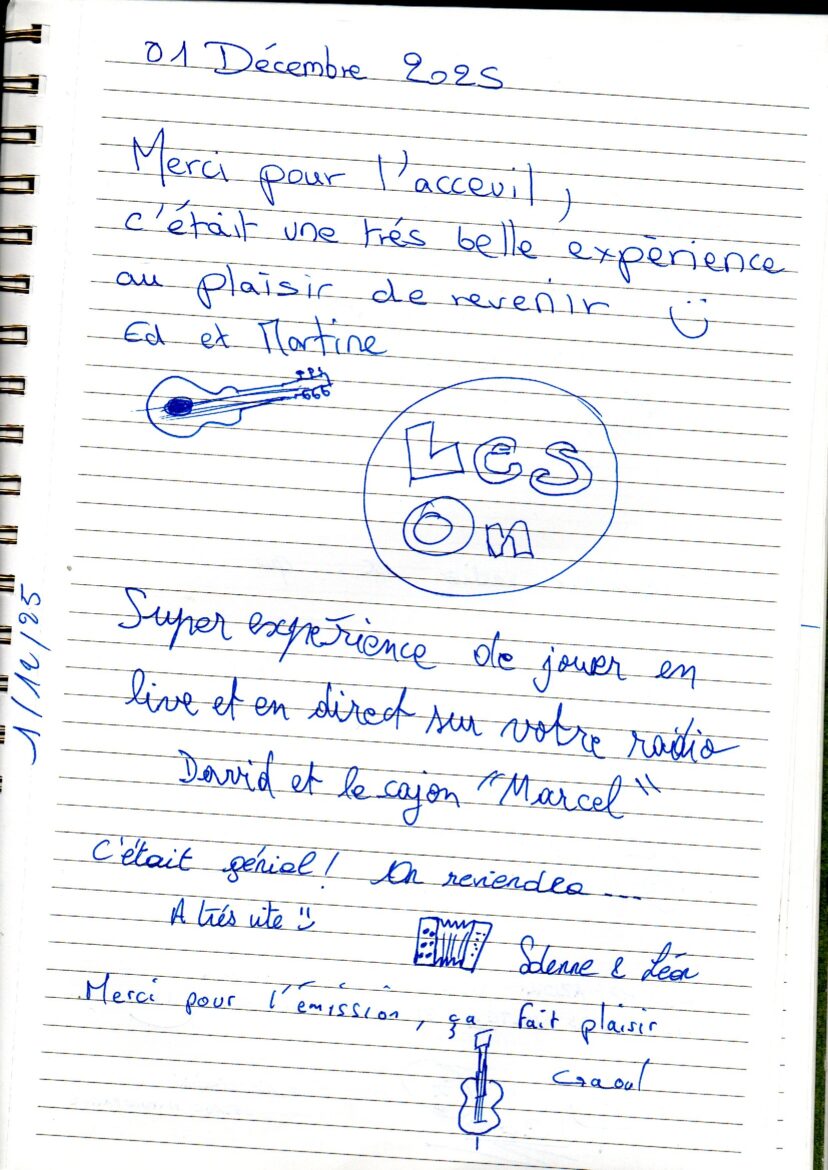 01 Décembre 2025
Merci pour l'acceuil,
c'était une trés belle expèrience
au plaisir de revenir
Ed et Martine
LeS
On
1/12/25
Super expérience de jouer en
live et en direct sur votre radio
David et le cajon "Marcel"
C'était génial! On reviendra...
A trés vite
Solenne & Léon
Merci pour l'émission, ça fait plaisir